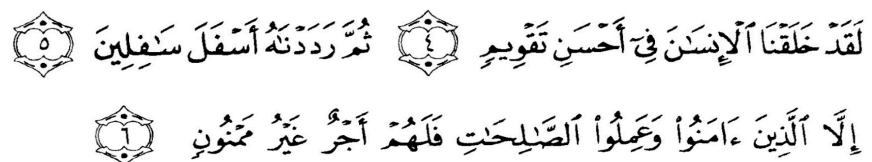 لَقَدۡ خَلَقۡنَا ٱلۡإِنسَٰنَ فِيٓ أَحۡسَنِ تَقۡوِيمٖ ٤ ثُمَّ رَدَدۡنَٰهُ أَسۡفَلَ سَٰفِلِينَ ٥
إِلَّا ٱلَّذِينَ ءَامَنُواْ وَعَمِلُواْ ٱلصَّٰلِحَٰتِ فَلَهُمۡ أَجۡرٌ غَيۡرُ مَمۡنُونٖ ٦